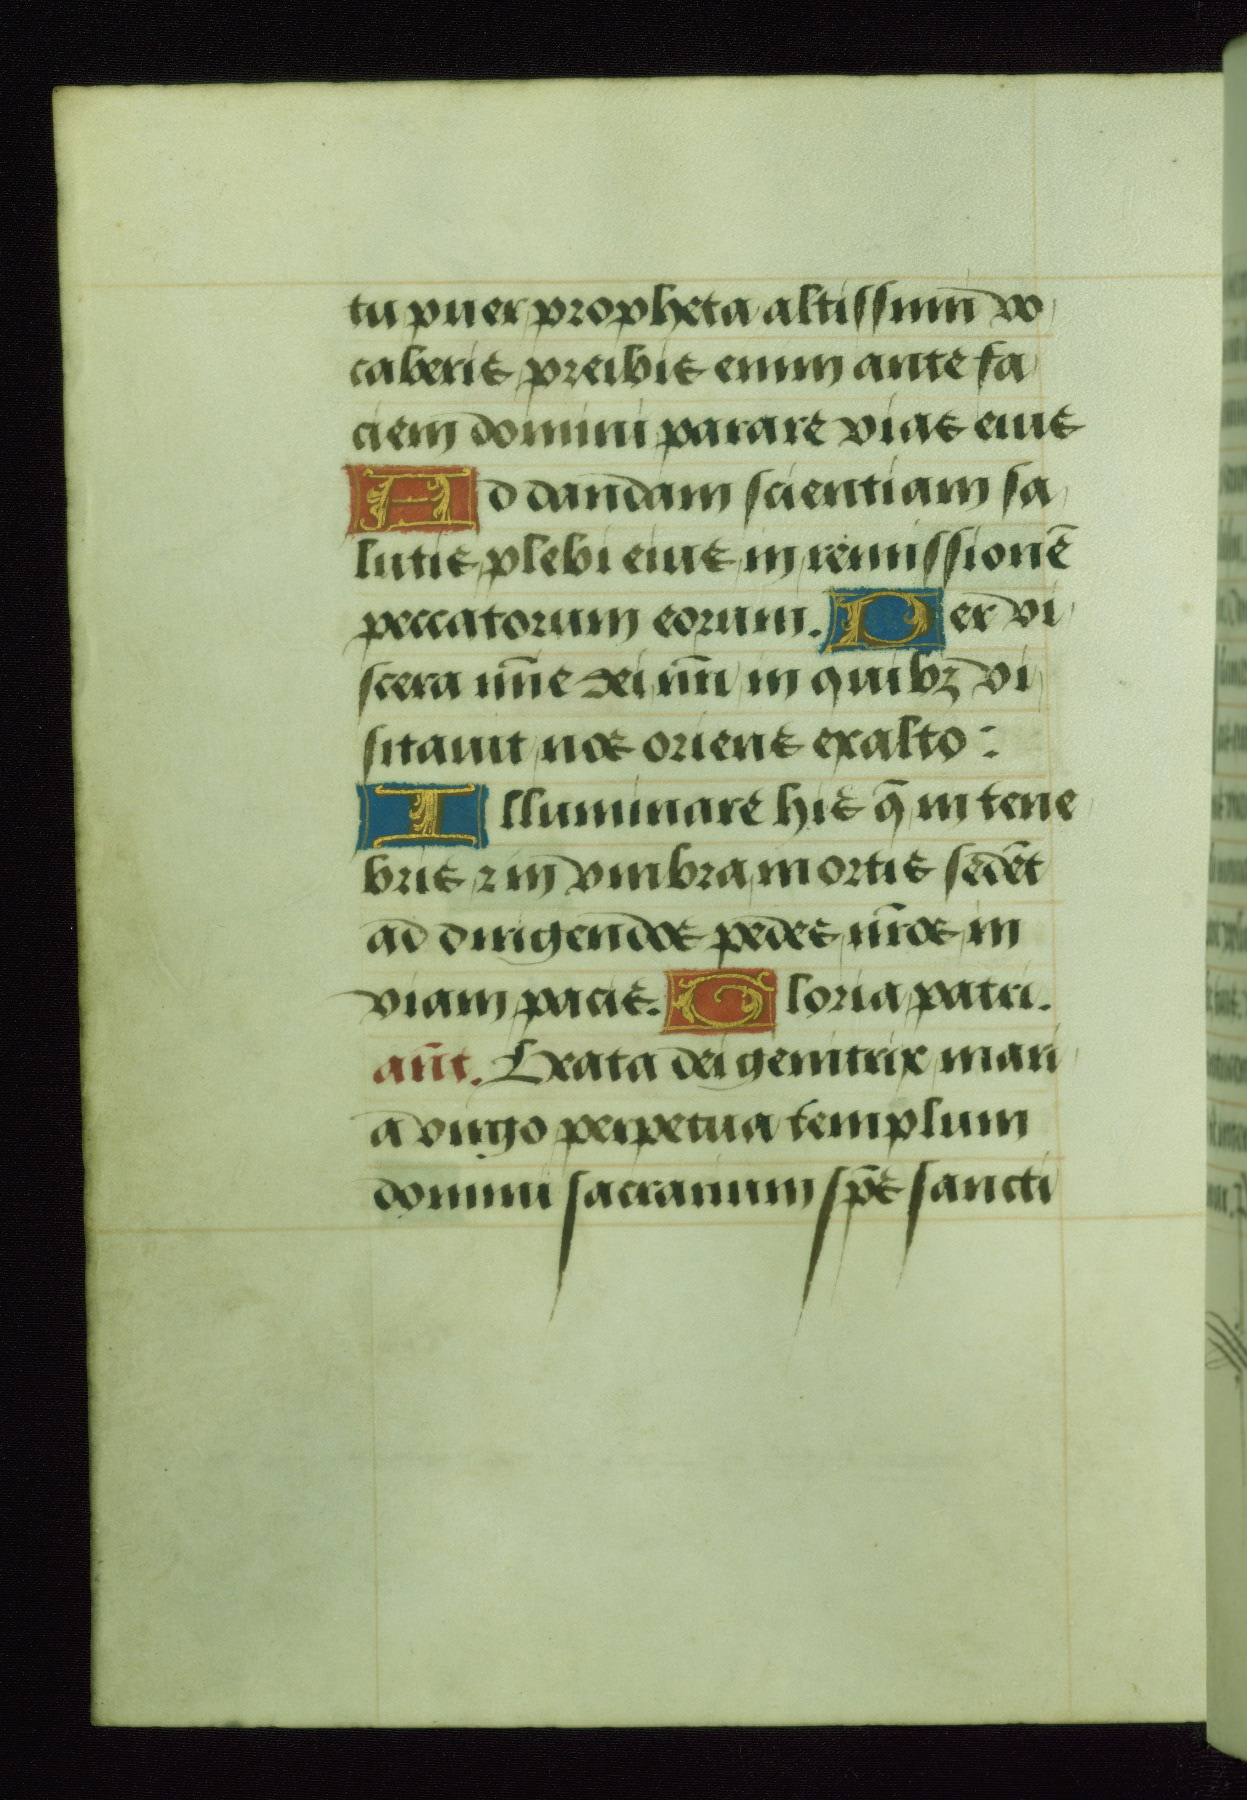 tu puer propheta altissimi vo
caberis preibis enim ante fa
ciem domini parare vias eius
Ad dandam scientiam sa
lutis plebi eius in remissionē
peccatorum eorum. Per vi
scera mīe dei nr̄i in quibꝫ vi
sitavit nos oriens exalto :
Illuminare his q̄ in tene
bris ⁊ in vmbra mortis sedēt
ad dirigendos pedes nr̄os in
viam pacis. Gloria patri.
an̄t. Beata dei genitrix mari
a virgo perpetua templum
domini sacrarium sp̄s sancti